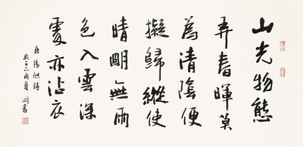 山光物態
弄春暉莫
為清陰便
擬歸縱使
晴明無雨
色入雲深
處亦沾衣
唐張旭詩